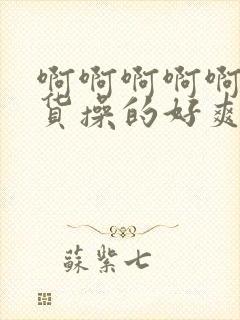 啊啊啊啊啊
货操的好爽
蘇紫七